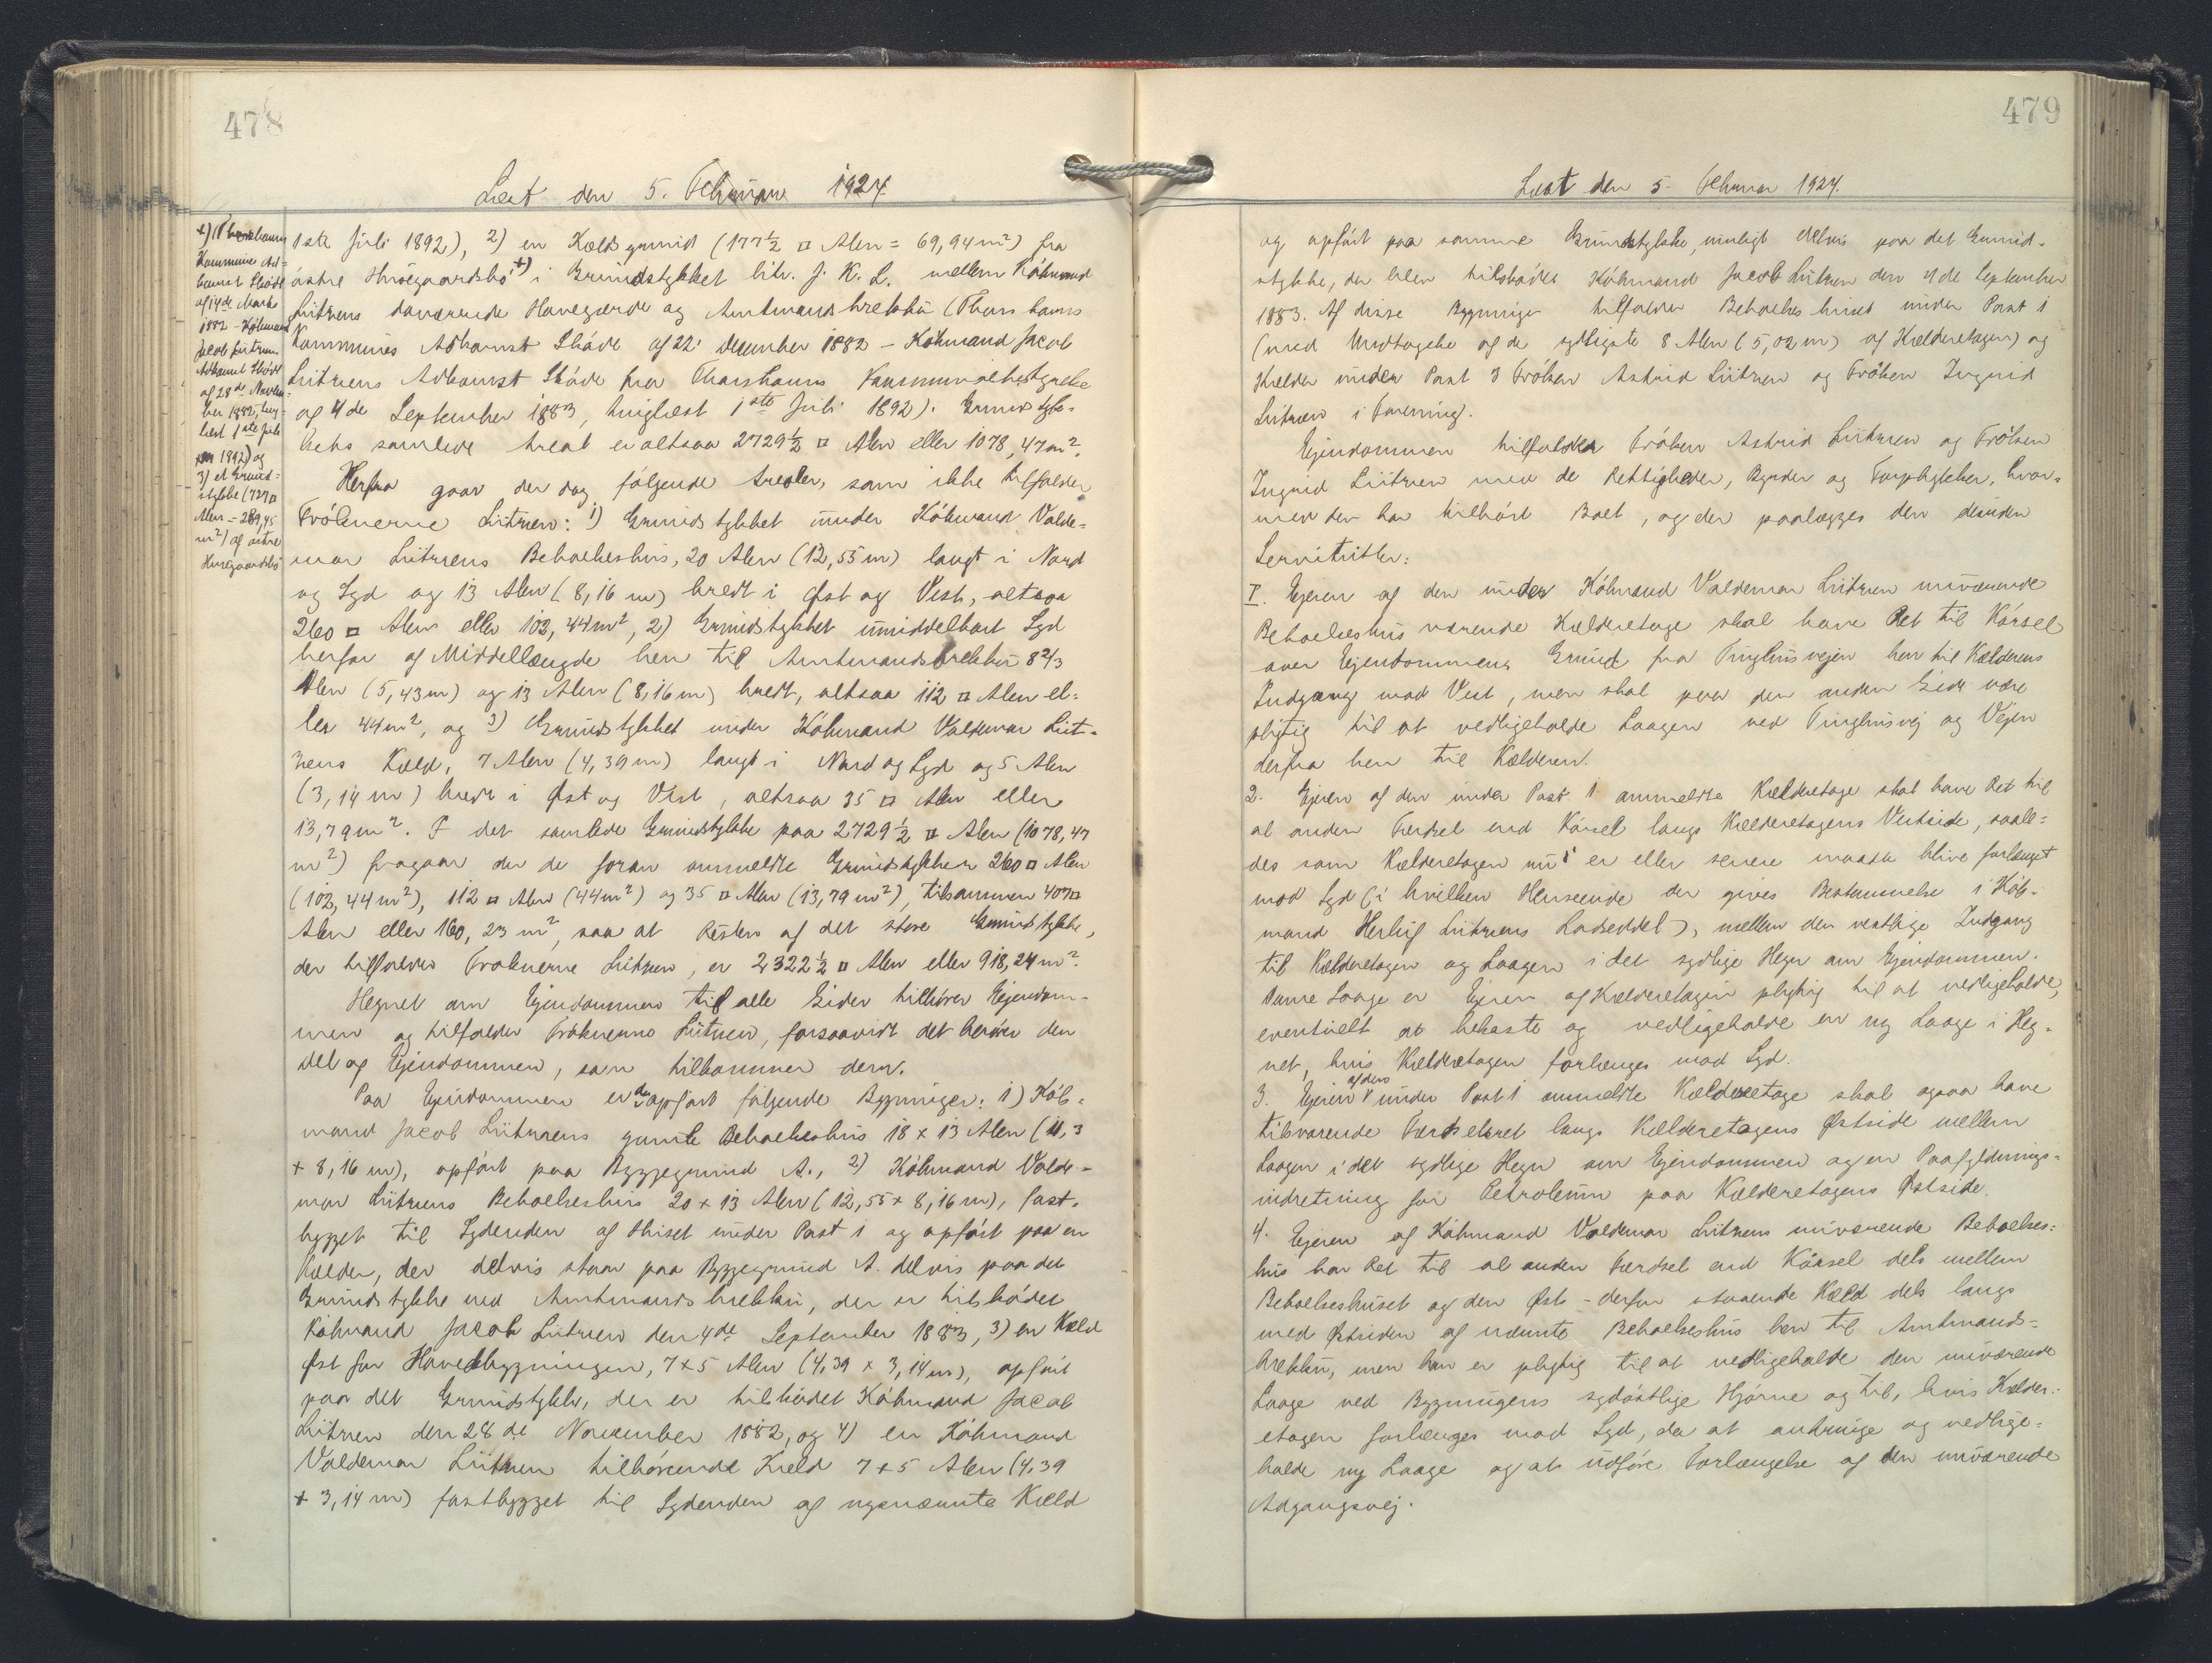 478
Læst den 5. Februar 1924.
+) (Thorshavns
Kommunes Ad-
komst Skøde
af 14de Marts
1882 - Købmand
Jacob Lützens
Adkomst Skøde
af 28de Novem-
ber 1882, ting-
læst 1ste Juli
1892) og
3) et Grund-
stykke (727 □
Alen = 289,45
m²) af østre
Husegaardsbø
1ste Juli 1892), 2) en Kælds grund (177½ □ Alen = 69,94 m²) fra
østre Husegaardsbø +) i Grundstykket litr. J. K. L. mellem Købmand
Lützens daværende Havegærde og Amtmandsbrekku (Thorshavns
Kommunes Adkomst Skøde af 22' december 1882 - Købmand Jacob
Lützens Adkomst Skøde fra Thorshavns Kommunalbestyrelse
af 4de September 1883, tinglæst 1ste Juli 1892). Grundstyk-
kets samlede Areal er altsaa 2729½ □ Alen eller 1078,47 m².
Herfra gaar der dog følgende Arealer, som ikke tilfalder
Frøknerne Lützen: 1) Grundstykket under Købmand Valde-
mar Lützens Beboelseshus, 20 Alen (12,55 m) langt i Nord
og Syd og 13 Alen (8,16 m) bredt i Øst og Vest, altsaa
260 □ Alen eller 102,44 m², 2) Grundstykket umiddelbart Syd
herfor af Middellængde hen til Amtmandsbrekku 8⅔
Alen (5,43 m) og 13 Alen (8,16 m) bredt, altsaa 112 □ Alen el-
ler 44 m², og 3) Grundstykket under Købmand Valdemar Lüt-
zens Kæld, 7 Alen (4,39 m) langt i Nord og Syd og 5 Alen
(3,14 m) bredt i Øst og Vest, altsaa 35 □ Alen eller
13,79 m². I det samlede Grundstykke paa 2729½ □ Alen (1078,47
m²) fragaar der de foran anmeldte Grundstykker 260 □ Alen
(102,44 m²), 112 □ Alen (44 m²) og 35 □ Alen (13,79 m²), tilsammen 407 □
Alen eller 160,23 m², saa at Resten af det store Grundstykke,
der tilfalder Frøknerne Lützen, er 2322½ □ Alen eller 918,24 m².
Hegnet om Ejendommen til alle Sider tilhører Ejendom-
men og tilfalder Frøknerne Lützen, forsaavidt det berører den
del af Ejendommen, som tilkommer dem.
Paa Ejendommen er der opført følgende Bygninger: 1) Køb-
mand Jacob Lützens gamle Beboelseshus 18 x 13 Alen (11,3
x 8,16 m), opført paa Byggegrund A., 2) Købmand Valde-
mar Lützens Beboelseshus 20 x 13 Alen (12,55 x 8,16 m), fast-
bygget til Sydenden af Huset under Post 1 og opført paa en
Kælder, der delvis staar paa Byggegrund A. delvis paa det
Grundstykke ved Amtmandsbrekku, der er tilskødet
Købmand Jacob Lützen den 4de September 1883, 3) en Kæld
Øst for Hovedbygningen, 7 x 5 Alen (4,39 x 3,14 m), opført
paa det Grundstykke, der er tilskødet Købmand Jacob
Lützen den 28de November 1882, og 4) en Købmand
Valdemar Lützen tilhørende Kæld 7 x 5 Alen (4,39
x 3,14 m) fastbygget til Sydenden af nysnævnte Kæld
479
Læst den 5. Februar 1924.
og opført paa samme Grundstykke, muligt delvis paa det Grund-
stykke, der blev tilskødet Købmand Jacob Lützen den 4de September
1883. Af disse Bygninger tilfalder Beboelseshuset under Post 1
(med Undtagelse af de sydligste 8 Alen (5,02 m) af Kælderetagen) og
Kælder under Post 3 Frøken Astrid Lützen og Frøken Ingrid
Lützen i Forening.
Ejendommen tilfalder Frøken Astrid Lützen og Frøken
Ingrid Lützen med de Rettigheder, Byrder og Forpligtelser, hvor-
med den har tilhørt Boet, og der paalægges den desuden
Servitutter:
I. Ejeren af den under Købmand Valdemar Lützen nuværende
Beboelseshus værende Kælderetage skal have Ret til Kørsel
over Ejendommens Grund fra Tinghusvejen hen til Kælderens
Indgang mod Vest, men skal paa den anden Side være
pligtig til at vedligeholde Laagen ved Tinghusvej og Vejen
derfra hen til Kælderen.
2. Ejeren af den under Post 1 anmeldte Kælderetage skal have Ret til
al anden Færdsel end Kørsel langs Kælderetagens Vestside, saale-
des som Kælderetagen nu er eller senere maatte blive forlænget
mod Syd (i hvilken Henseende der gives Bestemmelse i Køb-
mand Herluf Lützens Lodseddel), mellem den vestlige Indgang
til Kælderetagen og Laagen i det sydlige Hegn om Ejendommen.
Denne Laage er Ejeren af Kælderetagen pligtig til at vedligeholde,
eventuelt at bekoste og vedligeholde en ny Laage i Heg-
net, hvis Kælderetagen forlænges mod Syd.
3. Ejeren af den under Post 1 anmeldte Kælderetage skal ogsaa have
tilsvarende Færdselsret langs Kælderetagens Østside mellem
Laagen i det sydlige Hegn om Ejendommen og en Paafyldnings-
indretning for Petroleum paa Kælderetagens Østside.
4. Ejeren af Købmand Valdemar Lützens nuværende Beboelses-
hus har Ret til al anden Færdsel end Kørsel dels mellem
Beboelseshuset og den Øst - derfor staaende Kæld dels langs
med Østsiden af nævnte Beboelseshus hen til Amtmands-
brekku, men han er pligtig til at vedligeholde den nuværende
Laage ved Bygningens sydøstlige Hjørne og til, hvis Kælder-
etagen forlænges mod Syd, da at anbringe og vedlige-
holde ny Laage og at udføre Forlængelse af den nuværende
Adgangsvej.